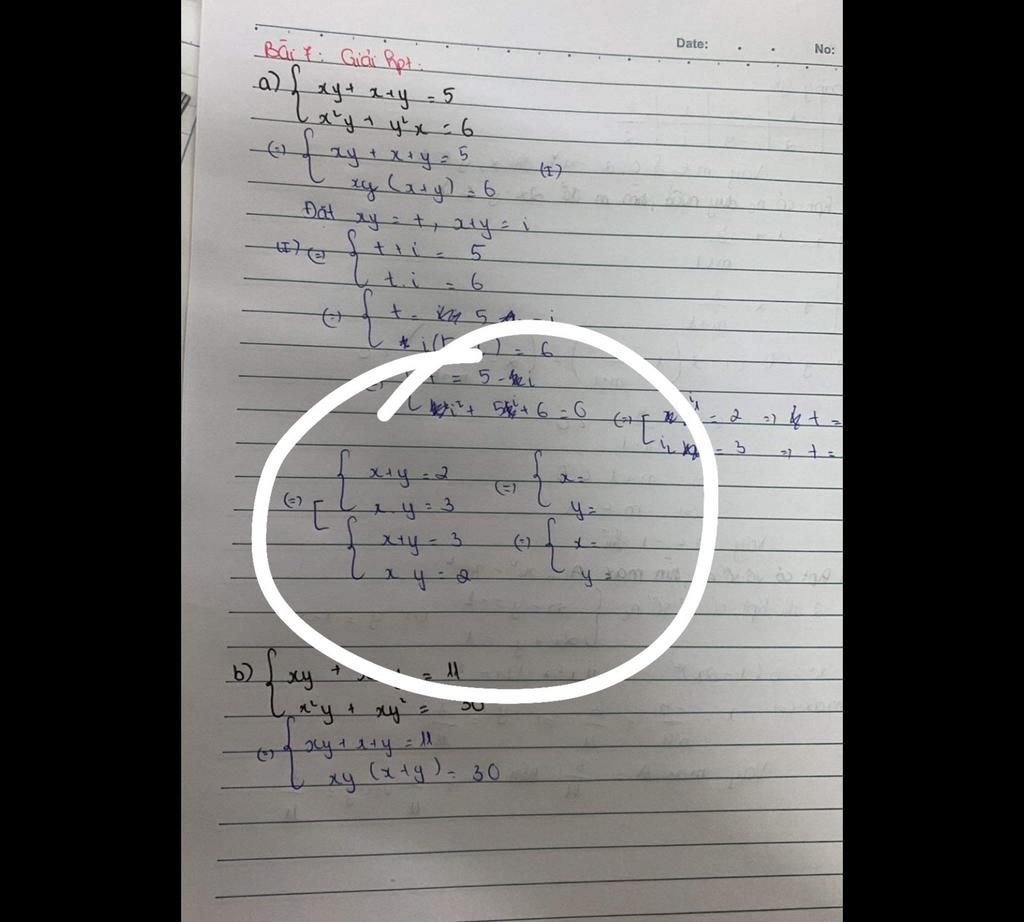 Date: No:
Bài 7: Giải hpt:
a) { xy + x + y = 5
x²y + y²x = 6
(=) { xy + x + y = 5 (I)
xy (x+y) = 6
Đặt xy = t, x+y = i
(I) (=) { t + i = 5
t . i = 6
(=) { t = 5 - i
= 6
= 5 - i
i² + 5i + 6 = 0 (=) [ = 2 => t =
= 3 => t =
(=) [ { x+y = 2 (=) { x =
x y = 3 y =
{ x+y = 3 (=) { x =
x y = 2 y =
b) { xy + = 11
x²y + xy² = 30
(=) { xy + x + y = 11
xy (x+y) = 30